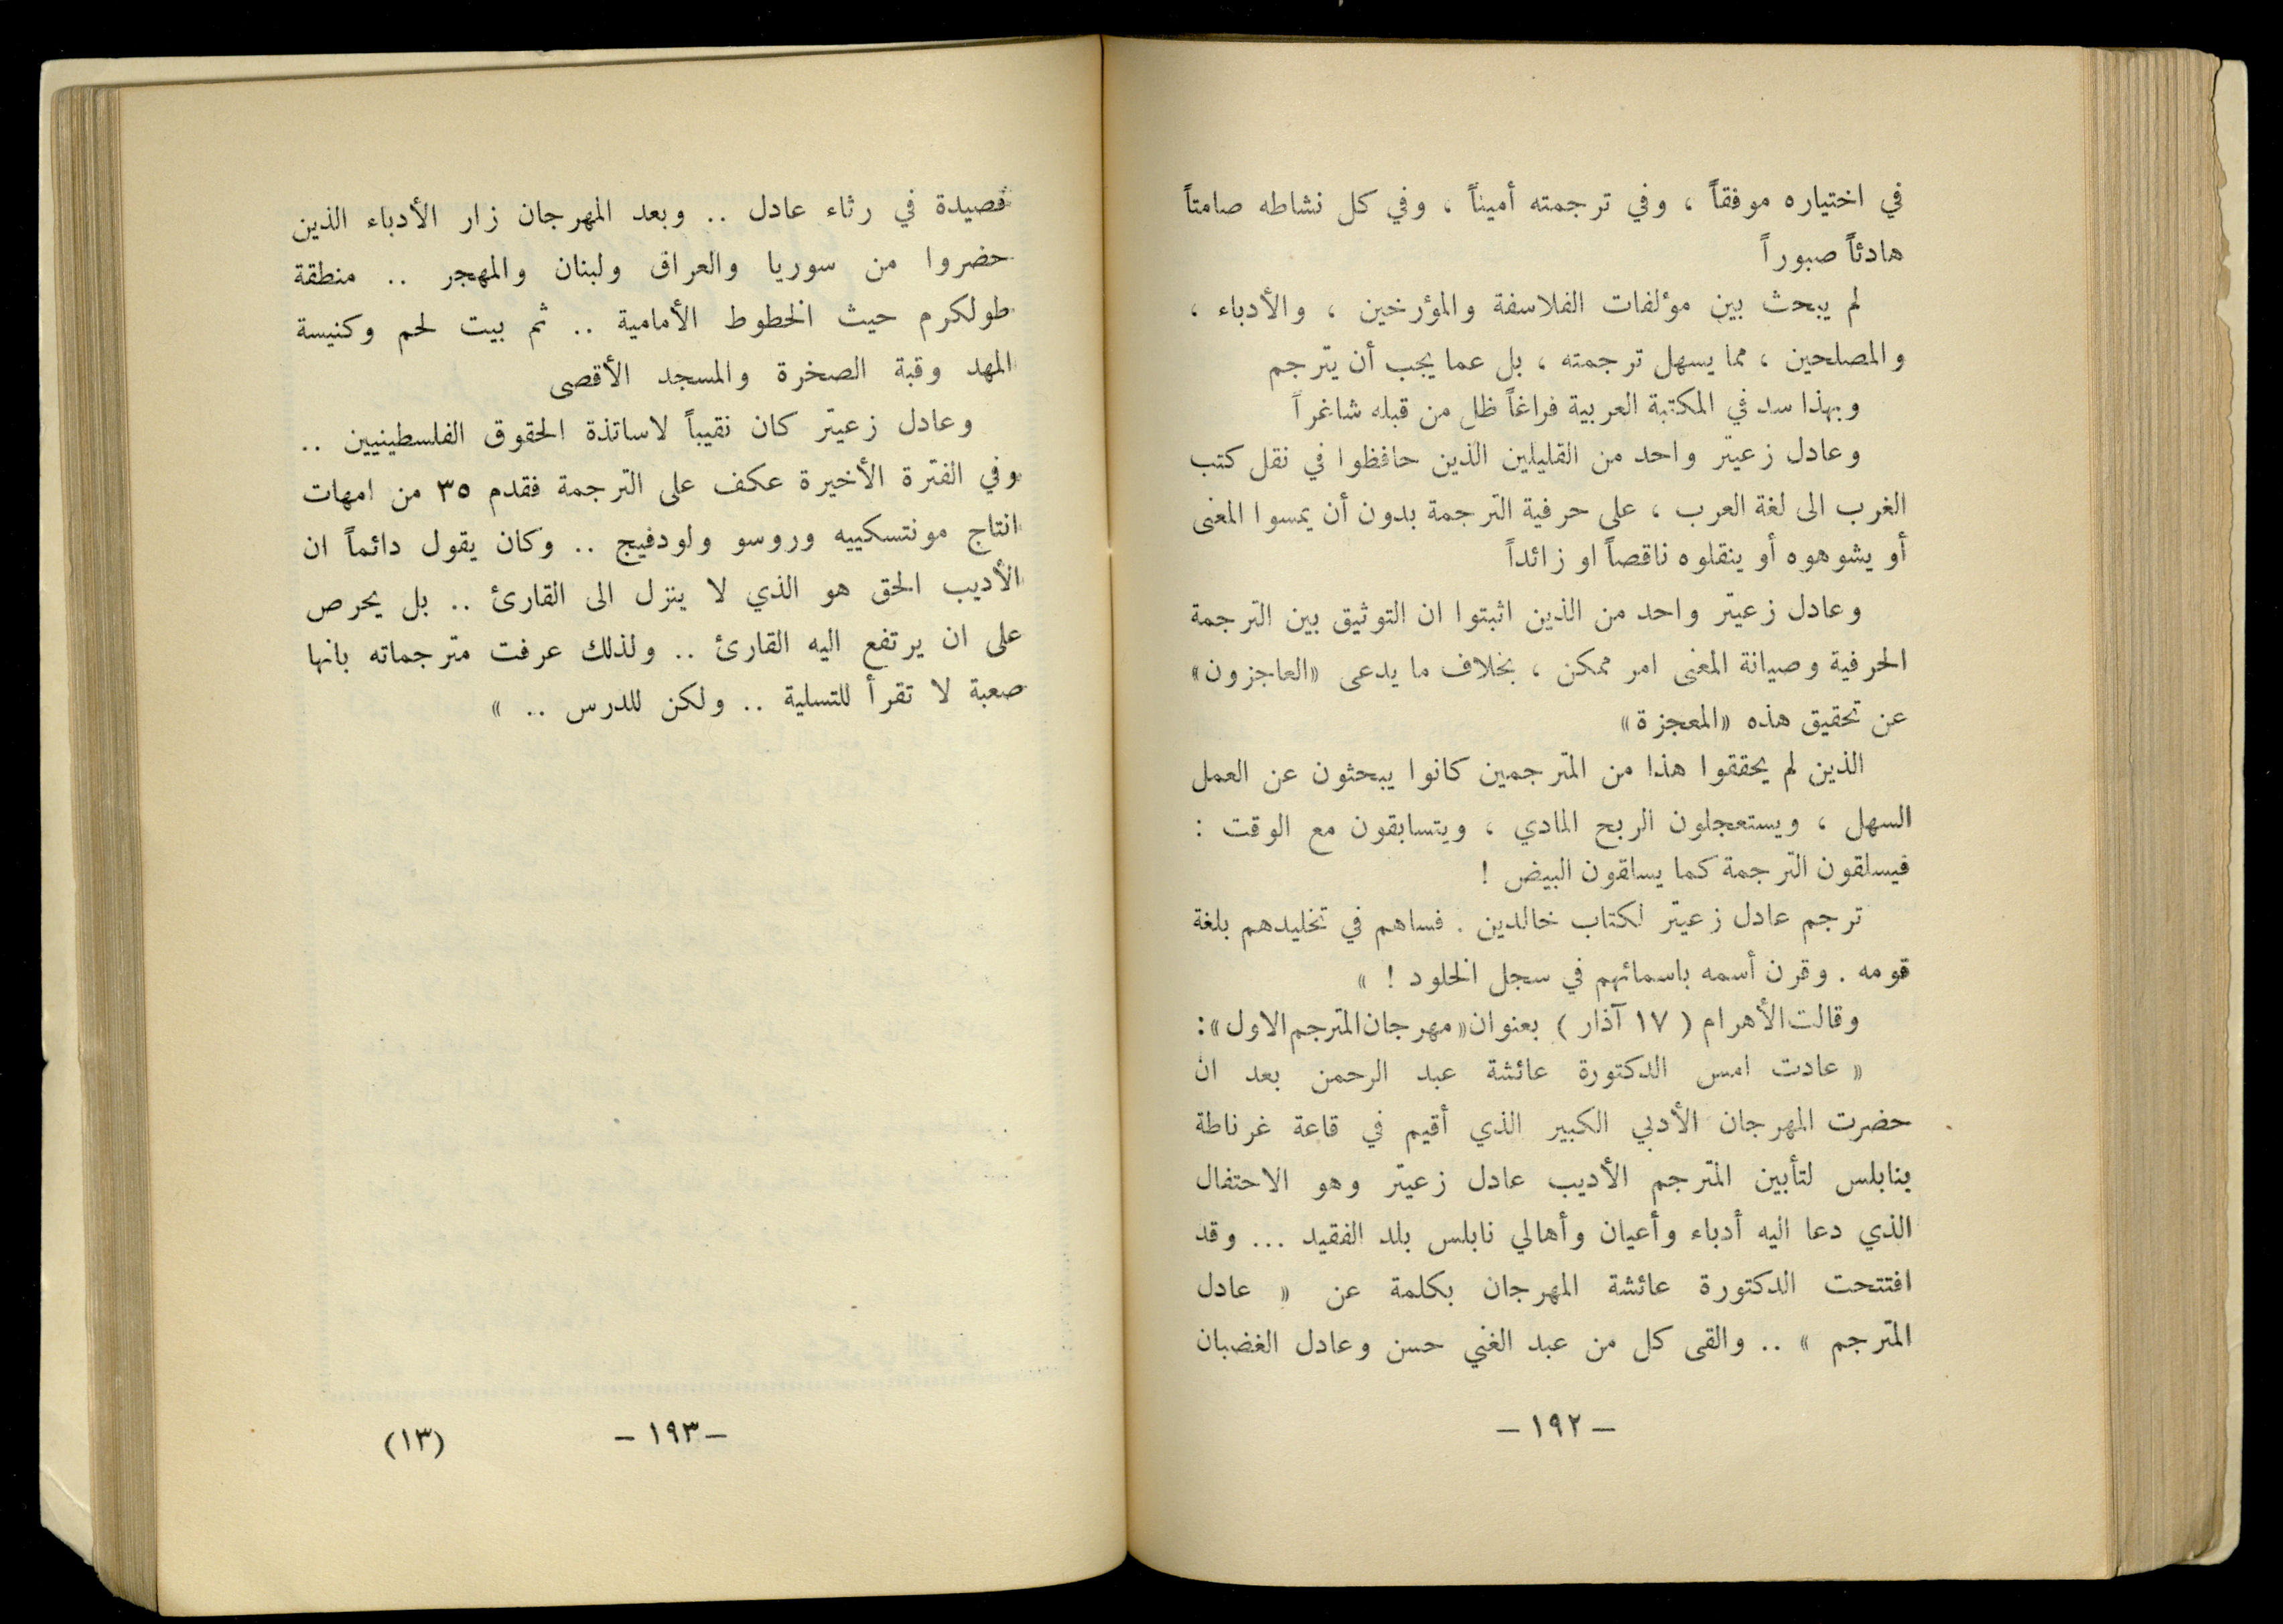 في اختياره موفقاً ، وفي ترجمته أميناً ، وفي كل نشاطه صامتاً
هادئاً صبوراً
لم يبحث بين مؤلفات الفلاسفة والمؤرخين ، والأدباء ،
والمصلحين ، مما يسهل ترجمته ، بل عما يجب أن يترجم
وبهذا سد في المكتبة العربية فراغاً ظل من قبله شاغراً
وعادل زعيتر واحد من القليلين الذين حافظوا في نقل كتب
الغرب الى لغة العرب ، على حرفية الترجمة بدون أن يمسوا المعنى
أو يشوهوه أو ينقلوه ناقصاً او زائداً
وعادل زعيتر واحد من الذين اثبتوا ان التوثيق بين الترجمة
الحرفية وصيانة المعنى امر ممكن ، بخلاف ما يدعى «العاجزون»
عن تحقيق هذه «المعجزة»
الذين لم يحققوا هذا من المترجمين كانوا يبحثون عن العمل
السهل ، ويستعجلون الربح المادي ، ويتسابقون مع الوقت :
فيسلقون الترجمة كما يسلقون البيض !
ترجم عادل زعيتر لكتاب خالدين . فساهم في تخليدهم بلغة
قومه . وقرن أسمه باسمائهم في سجل الخلود ! »
وقالت الأهرام ( ١٧ آذار ) بعنوان «مهرجان المترجم الاول» :
« عادت امس الدكتورة عائشة عبد الرحمن بعد ان
حضرت المهرجان الأدبي الكبير الذي أقيم في قاعة غرناطة
بنابلس لتأبين المترجم الأديب عادل زعيتر وهو الاحتفال
الذي دعا اليه أدباء وأعيان وأهالي نابلس بلد الفقيد ... وقد
افتتحت الدكتورة عائشة المهرجان بكلمة عن « عادل
المترجم » .. والقى كل من عبد الغني حسن وعادل الغضبان
— ١٩٢ —
قصيدة في رثاء عادل .. وبعد المهرجان زار الأدباء الذين
حضروا من سوريا والعراق ولبنان والمهجر .. منطقة
طولكرم حيث الخطوط الأمامية .. ثم بيت لحم وكنيسة
المهد وقبة الصخرة والمسجد الأقصى
وعادل زعيتر كان نقيباً لاساتذة الحقوق الفلسطينيين ..
وفي الفترة الأخيرة عكف على الترجمة فقدم ٣٥ من امهات
انتاج مونتسكييه وروسو ولودفيج .. وكان يقول دائماً ان
الأديب الحق هو الذي لا ينزل الى القارئ .. بل يحرص
على ان يرتفع اليه القارئ .. ولذلك عرفت مترجماته بانها
صعبة لا تقرأ للتسلية .. ولكن للدرس .. »
— ١٩٣ —
(١٣)